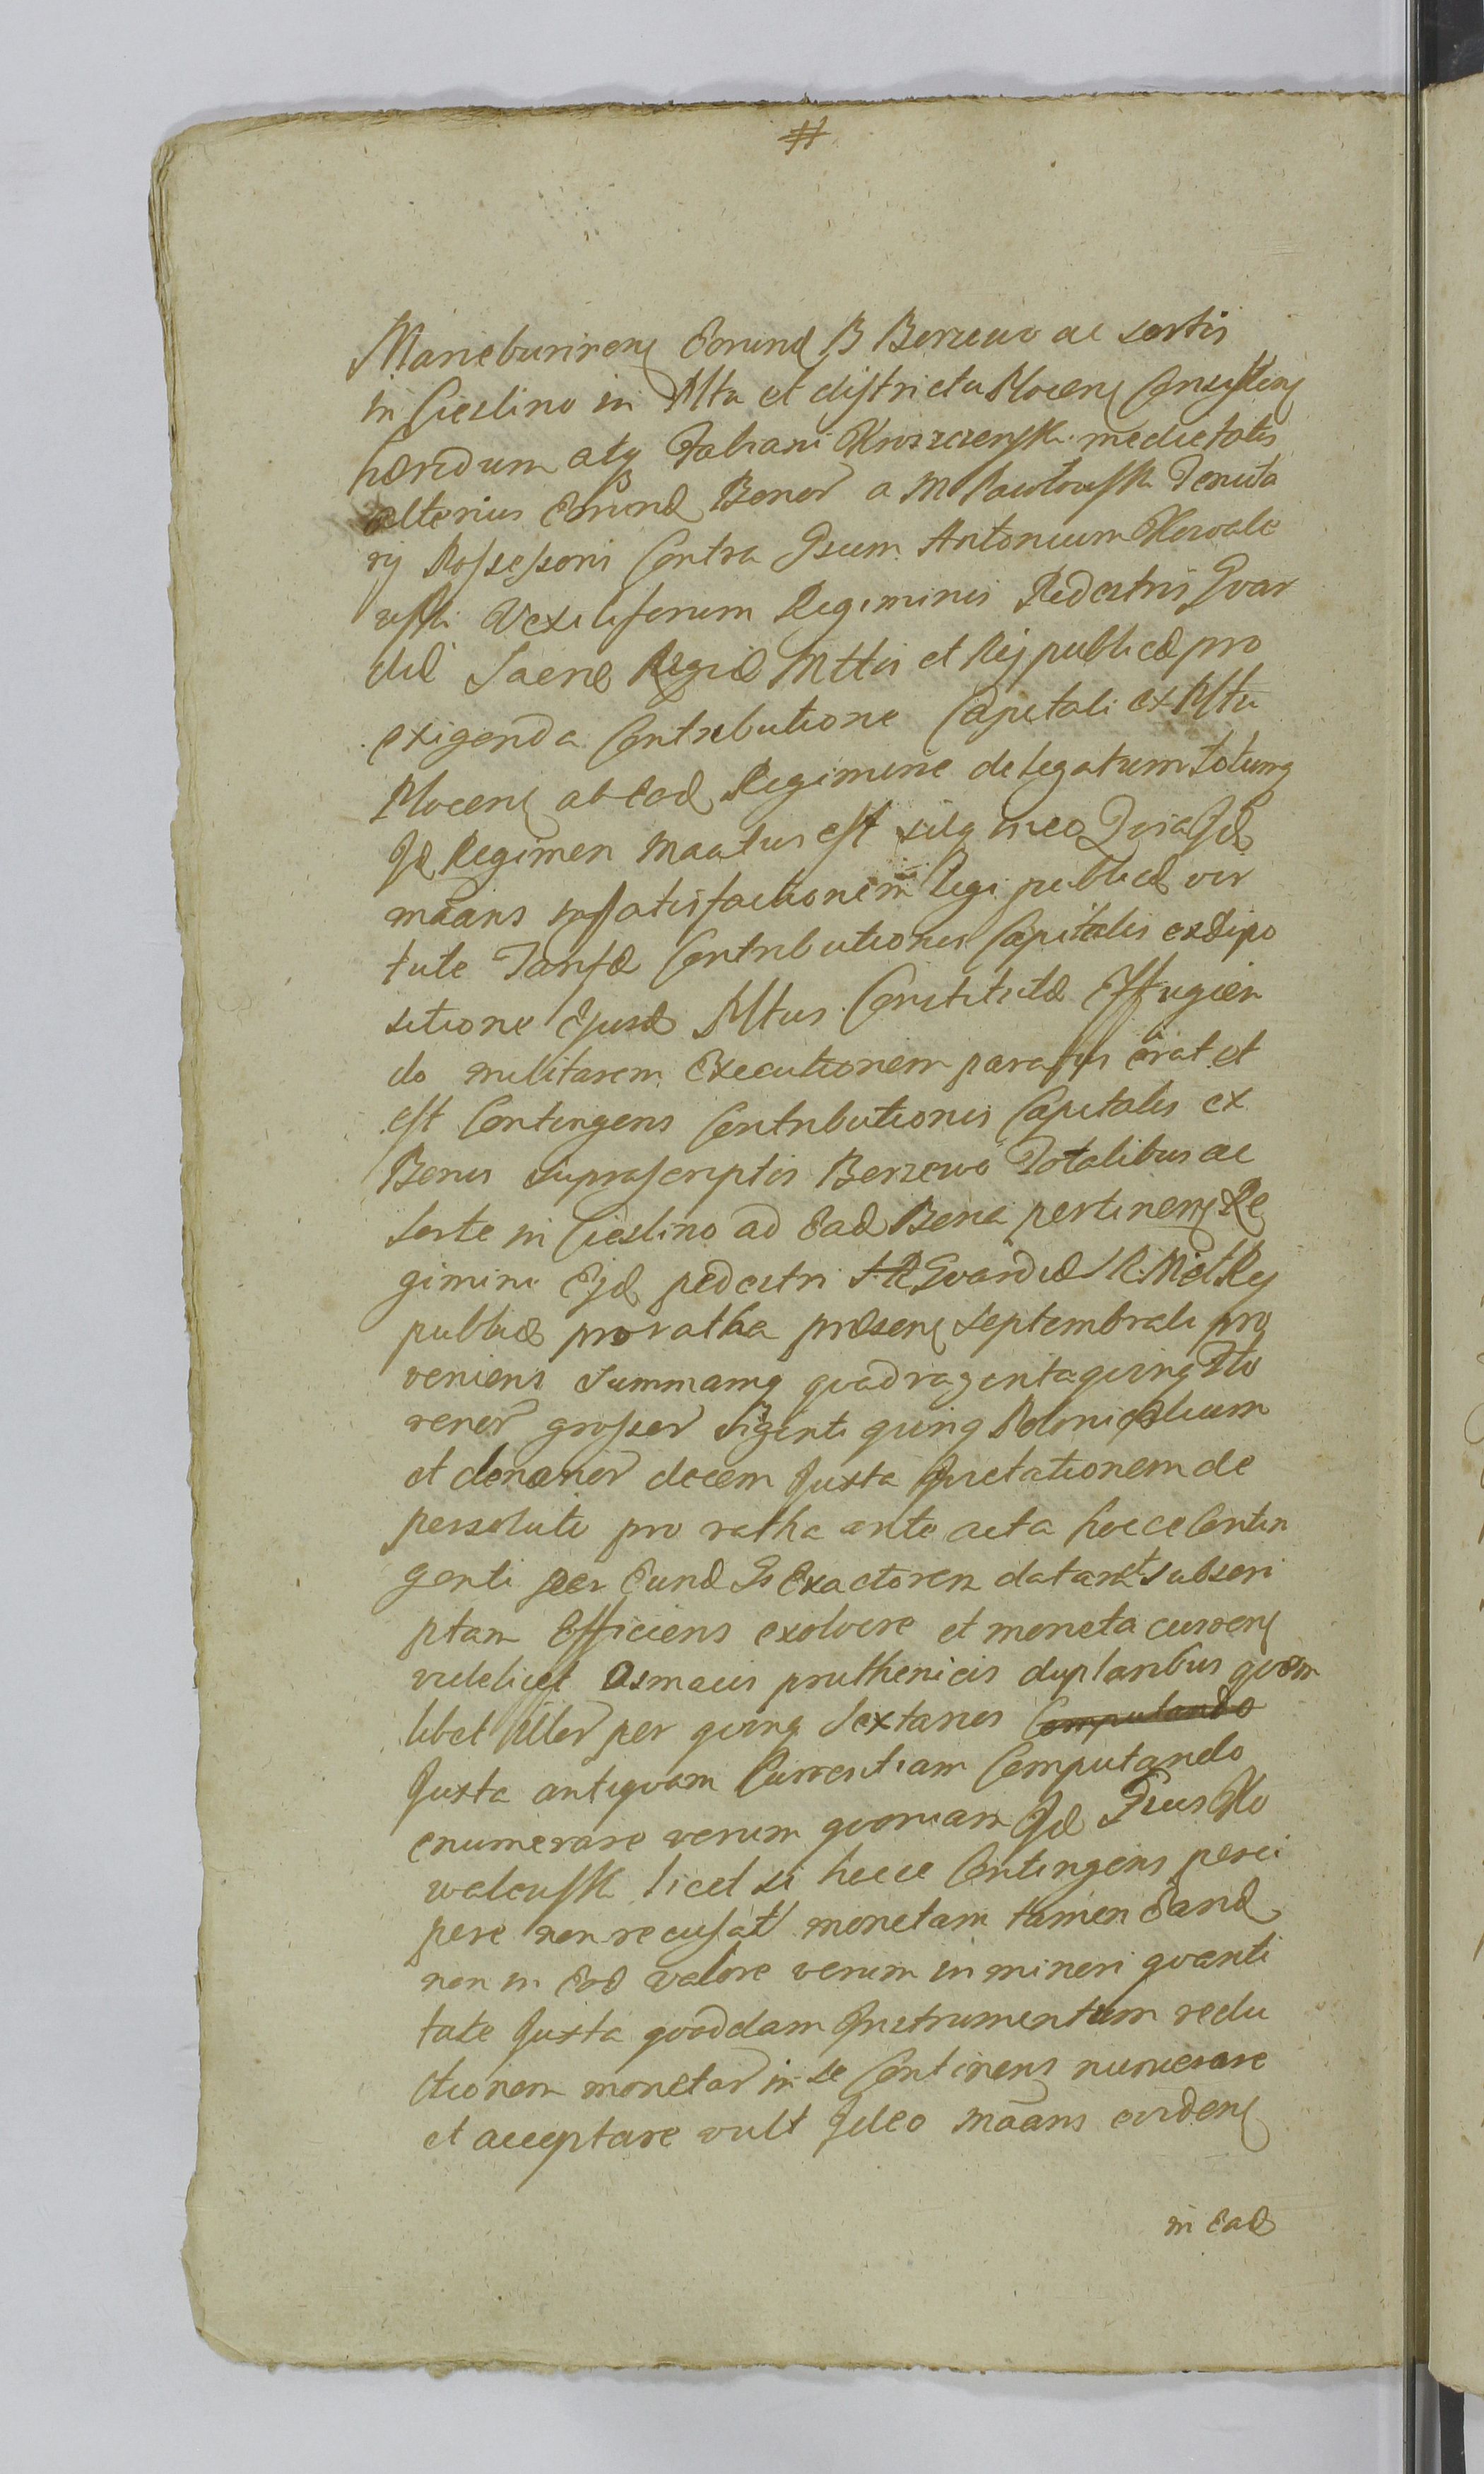 #
Marieburinens Eorund B Berzewo ac sortis
in Cieslino in Pltu et districtu Plocens Consistens
hæredum atq Fabiani Kruszczewski medietatis
alterius Eorund Bonor a M Pawłowski Tenuta
rij Possessoris Contra Gsum Antonium Kowale
wski Vexiliferum Regiminis Pedestris Gvar
diæ Sacræ Regiæ Mttis et Reipublicæ pro
exigenda Contributione Capitali ex Pltu
Plocens ab Eod Regimine delegatum totumq
Id Regimen maatus est silq in eo Quia Id
maans in satisfactionem Legi publicæ vir
tute Tariffæ Contributionis Capitalis ex dispo
sitione Ejusd Pltus Constitutæ Effugien
do militarem Executionem paratus erat et
est Contingens Contributionis Capitalis ex
Bonis suprascriptis Berzewo Totalibus ac
sorte in Cieslino ad Ead Bona pertinens Re
gimini Ejd pedestri Gvardiæ S R M et Rei
publicæ pro ratha præsens septembrali pro
veniens summamq quadraginta quinq Flo
renor grossor viginti quinq Polonicalium
et denarior decem Juxta Quietationem de
persoluti pro ratha ante acta hocce Contin
genti per Eund Gs Exactorem datam et subscri
ptam Efficiens exolvere et moneta currens
videlicet Osmacis pruthenicis duplaribus quem
libet iller per quinq sextarios ~~Computando~~
Juxta antiquam Currentiam Computando
enumerare verum quoniam Id Gsus Ko
walewski licet si hocce Contingens perci
pere non recusat monetam tamen Eand
non in Eod valore verum in minori quanti
tate Juxta quoddam Instrumentum redu
ctionem monetar in se Continens numerare
et acceptare vult Ideo maans evidens
in Ead